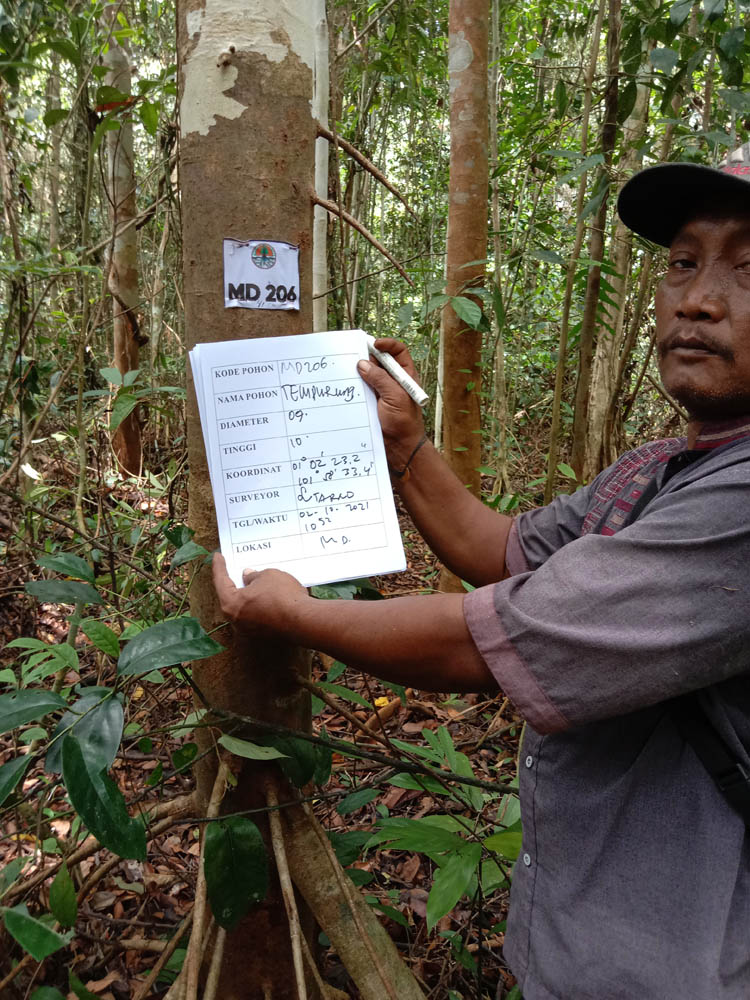 MD 206
KODE POHON MD206.
NAMA POHON TEMPURUNG.
DIAMETER 09.
TINGGI 10.
KOORDINAT 01° 02' 23,2"
101° 58' 33,4"
SURVEYOR SUTARNO
TGL/WAKTU 02-10-2021
1052
LOKASI MD.